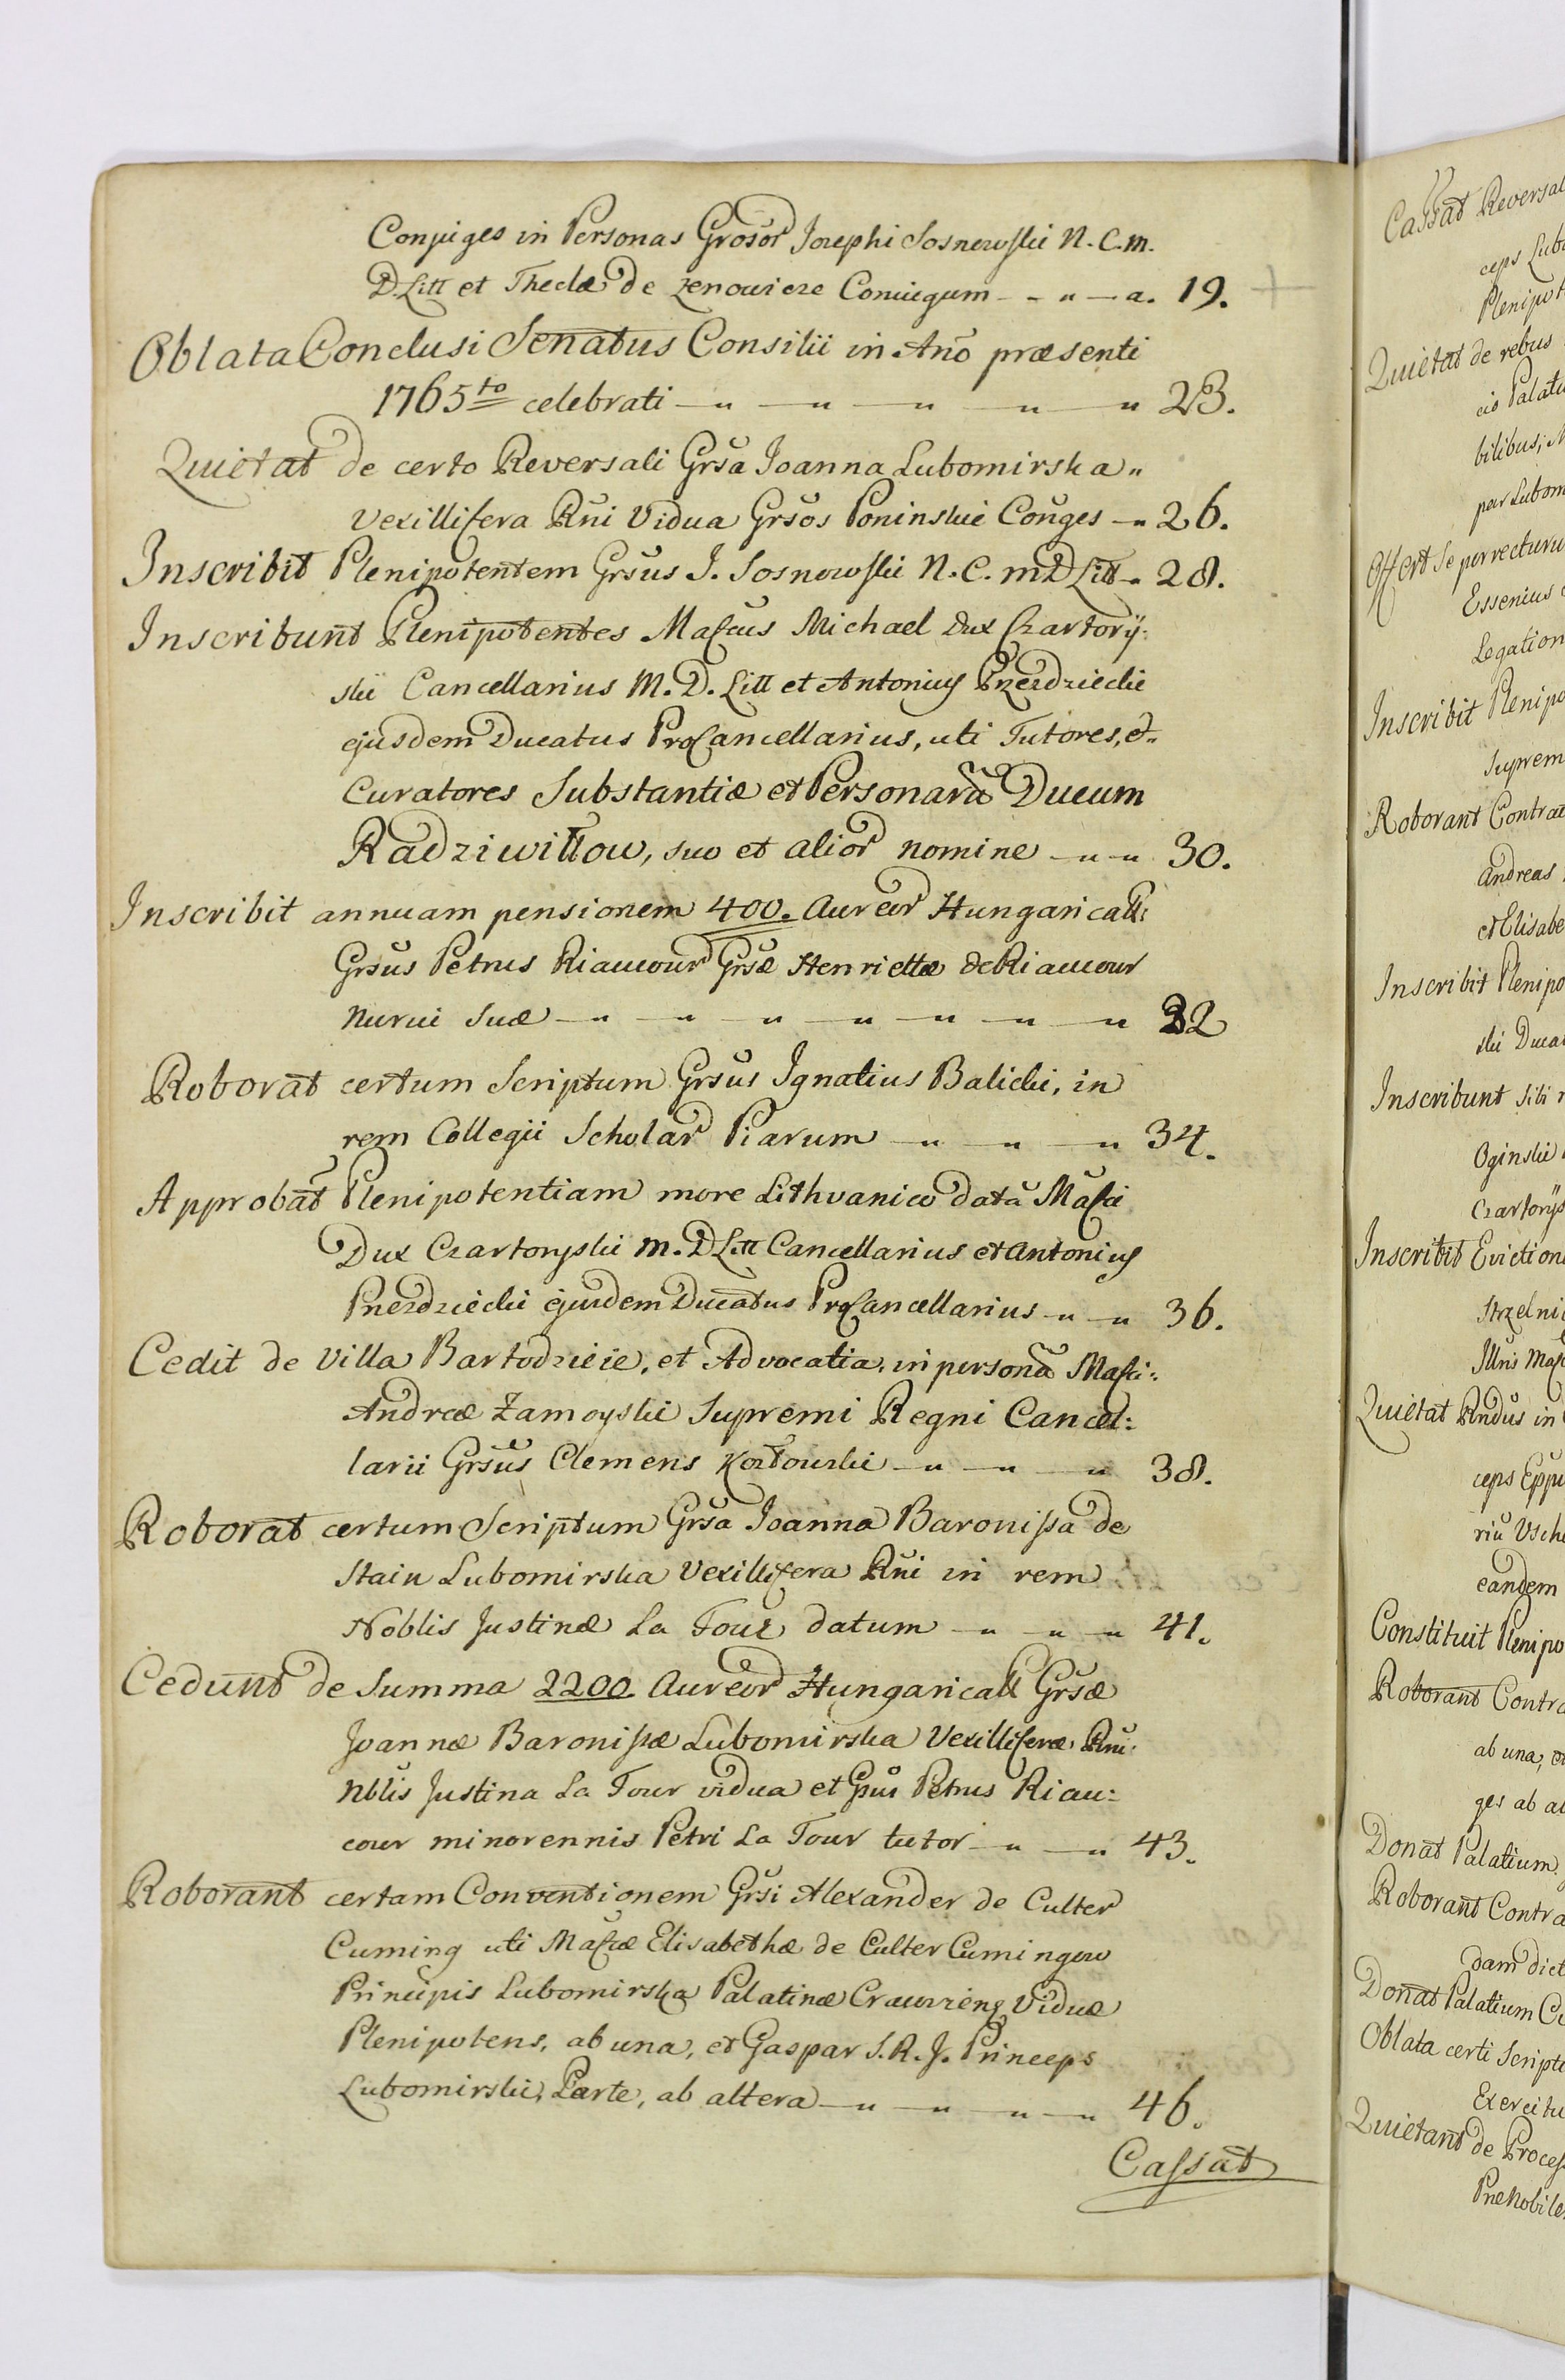 Conjuges in Personas Grosor Josephi Sosnowskii N. C. M.
D. Litt et Theclæ de Zenowicze Coniugum - - " - a. 19.
Oblata Conclusi Senatus Consilii in Año præsenti
1765to celebrati - " - " - " - " - " 23.
Quietat de certo Reversali Grsa Joanna Lubomirska "
Vexillifera Rni Vidua Grsos Poninskie Conges - " 26.
Inscribit Plenipotentem Grsus J. Sosnowskii N. C. M D Litt - 28.
Inscribunt Plenipotentes Mafcus Michael Dux Czartorÿ:
skii Cancellarius M. D. Litt et Antonius Przezdziecki
ejusdem Ducatus ProCancellarius, uti Tutores, et "
Curatores Substantiæ et Personarũ Ducum
Radziwiłłow, suo et alior nomine - " - " 30.
Inscribit annuam pensionem 400. Aureor Hungaricall:
Grsus Petrus Riaucour Grsæ Henriettæ de Riaucour
Nurui Suæ - " - " - " - " - " - " - " 32
Roborat certum Scriptum Grsus Ignatius Balicki, in
rem Collegii Scholar Piarum - " - " - " 34.
Approbat Plenipotentiam more Lithvanico datã Mafci
Dux Czartoryskii M. D Litt Cancellarius et Antonius
Przezdziecki ejusdem Ducatus ProCancellarius - " - " 36.
Cedit de Villa Bartodzieie, et Advocatia, in personã Mafci:
Andreæ Zamoyskii Supremi Regni Cancel:
larii Grsus Clemens Kozłowskii - " - " - " 38.
Roborat certum Scriptum Grsa Joanna Baronissa de
Stain Lubomirska Vexillifera Rni in rem
Noblis Justinæ La Tour datum - " - " - " 41.
Cedunt de Summa 2200 Aureor Hungaricall Grsæ
Joannæ Baronissæ Lubomirska Vexilliferæ Rni
Nblis Justina La Tour vidua et Gsus Petrus Riau:
cour minorennis Petri La Tour tutor - " - " 43.
Roborant certam Conventionem Grsi Alexander de Culter
Cuming uti Mafcæ Elisabethæ de Culter Cumingow
Principis Lubomirska Palatinæ Cracoviens Viduæ
Plenipotens, ab una, et Gaspar S. R. J. Princeps
Lubomirskii, Parte, ab altera - " - " - " - " 46.
Cassat
Cassat Reversal
ceps Lubo
Plenipot
Quietat de rebus
cis Palati
bilibus,
par Lubom
Offert Se porrecturu
Essenius
Legation
Inscribit Plenipo
Suprem
Roborant Contrac
Andreas
et Elisabe
Inscribit Plenipo
skii Ducat
Inscribunt sibi
Oginskii
Czartorÿs
Inscribit Eviction
Strzelni
Illris
Quietat Rndus in
ceps Eppu
riu
eandem
Constituit Plenipo
Roborant Contra
ab una,
ges ab al
Donat Palatium
Roborant Contra
dam dict
Donat Palatium
Oblata certi Scripti
Exercitu
Quietant de Process
Prænobile